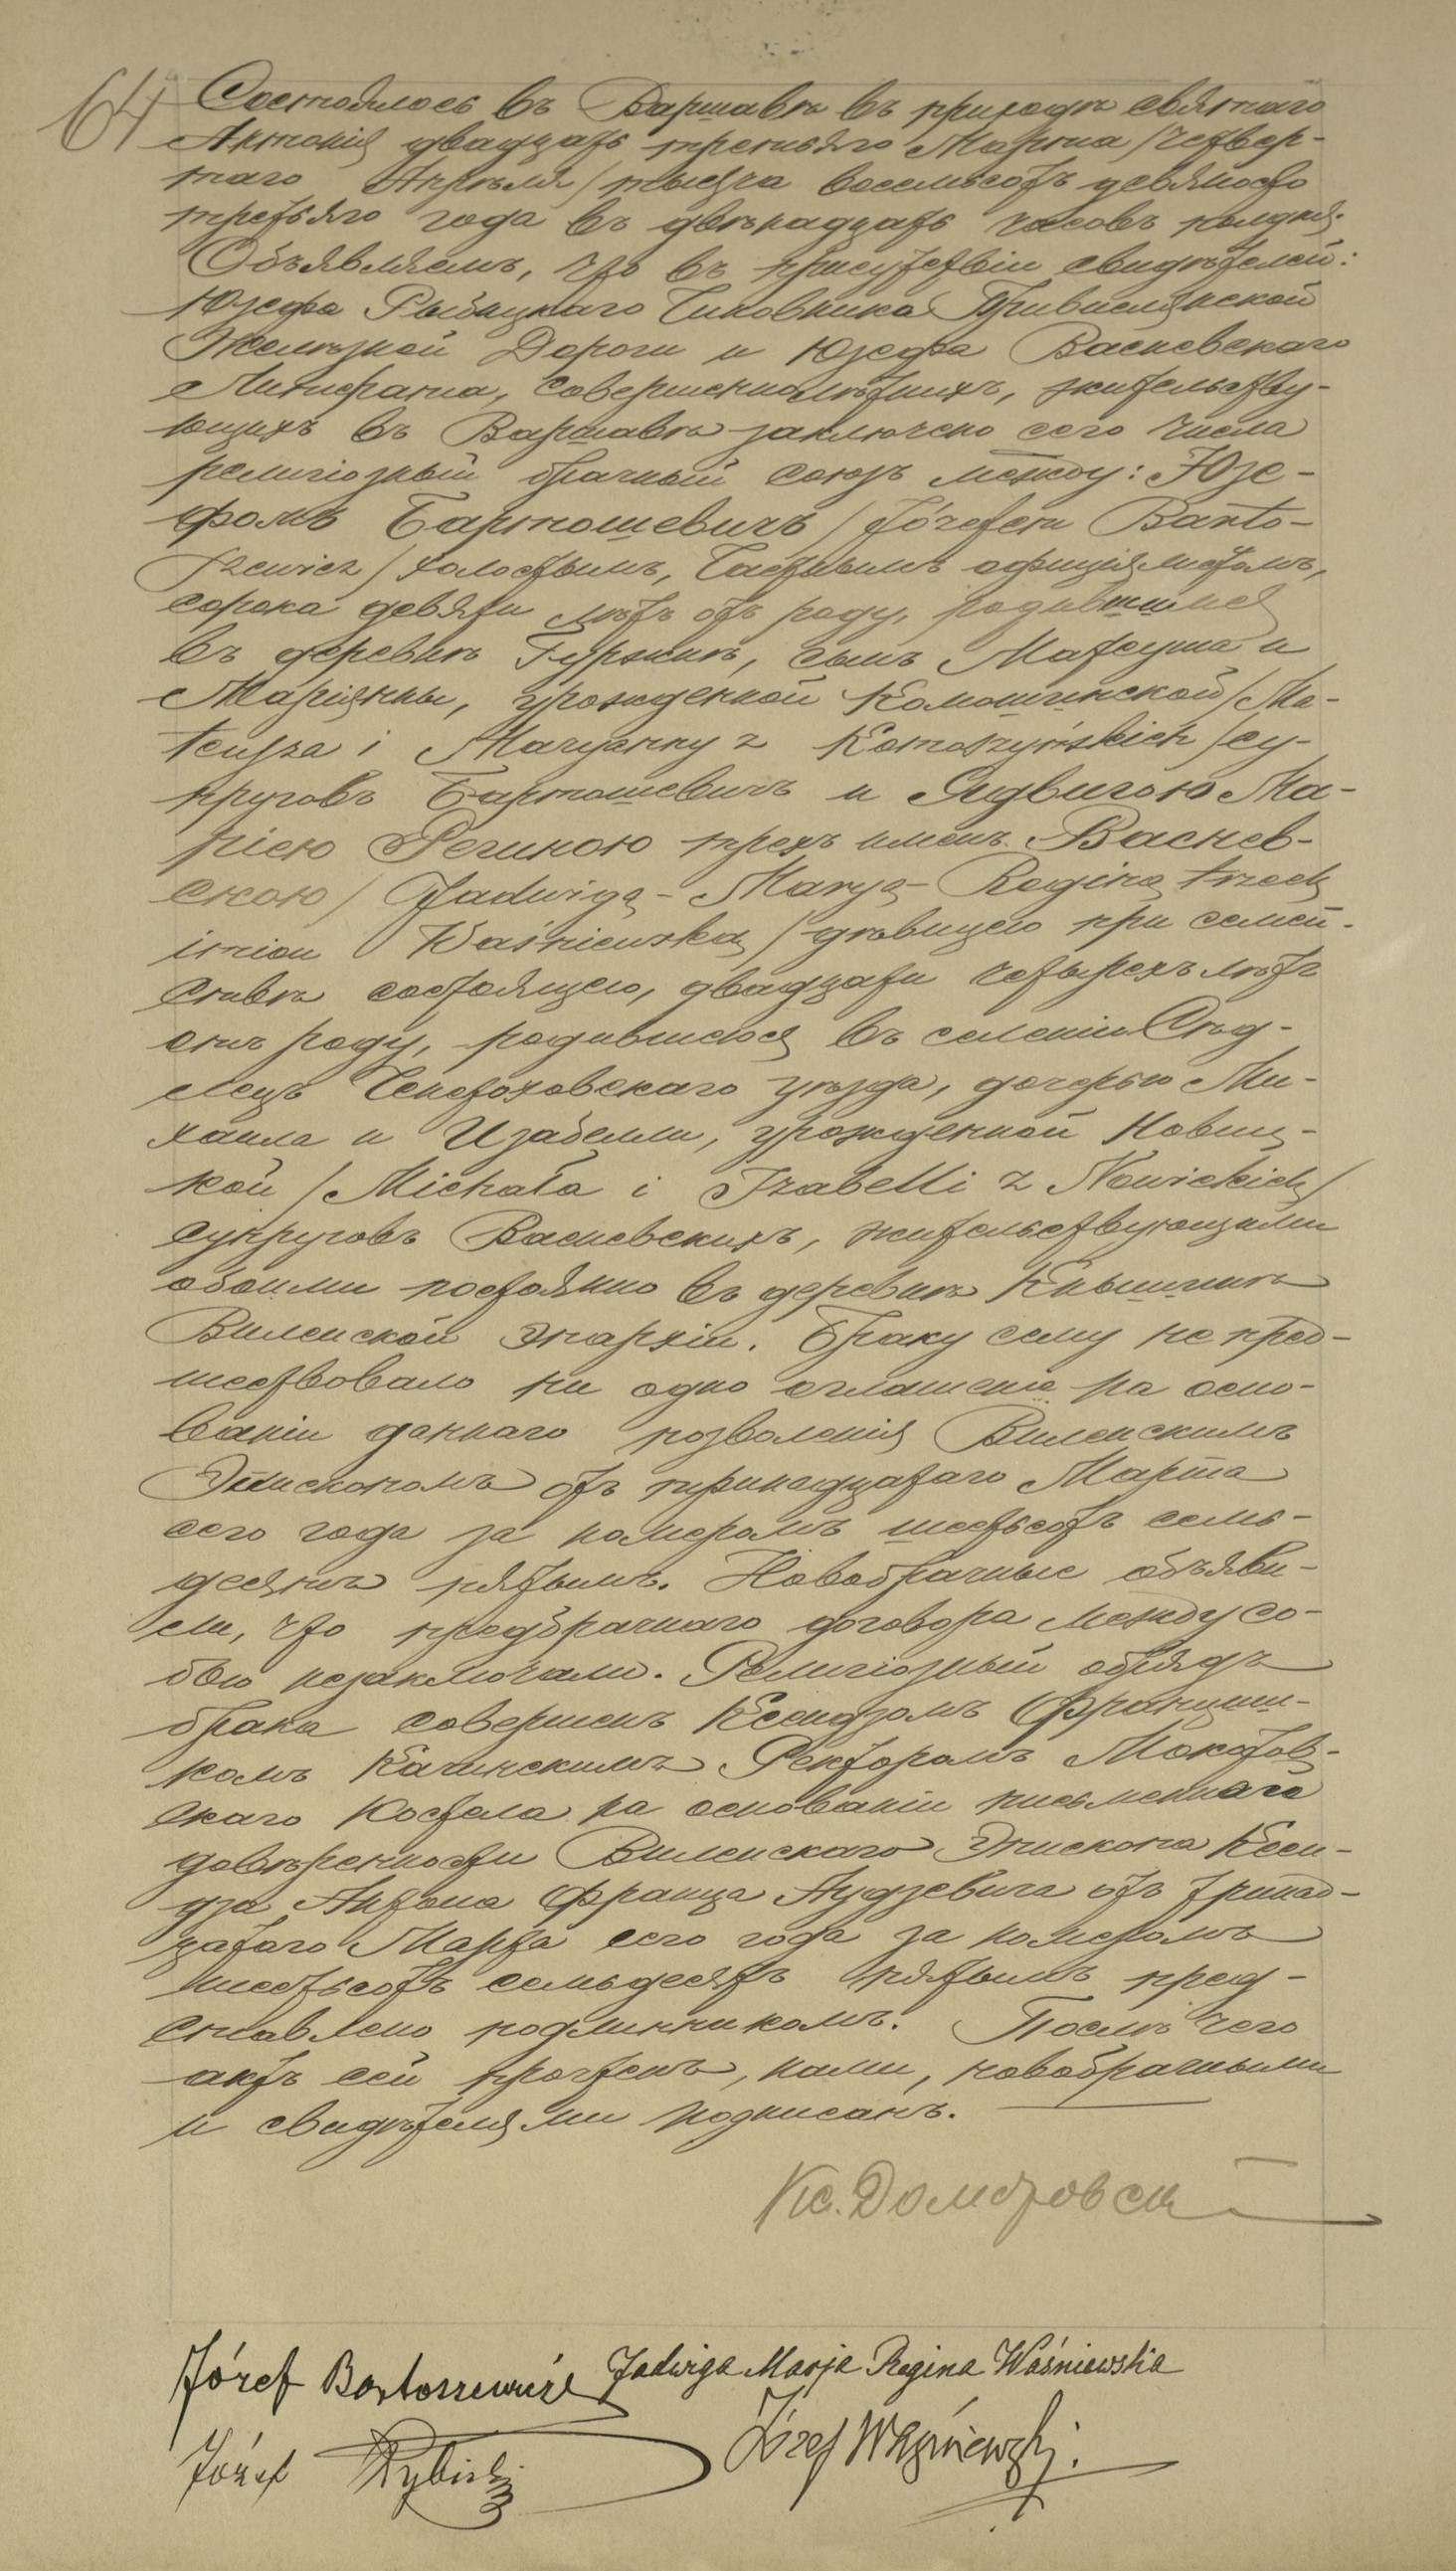 64 Состоялось въ Варшавѣ въ приходѣ святаго
Антонія двадцать третьяго Марта /четвер-
таго Апрѣля/ тысяча восемьсотъ девяносто
третьяго года въ двѣнадцать часовъ полудня.
Объявляемъ, что въ присутствіи свидѣтелей:
Юзефа Рыбицкаго Чиновника Привислянской
Желѣзной Дороги и Юзефа Васневскаго
Литографа, совершеннолѣтнихъ, жительству-
ющихъ въ Варшавѣ заключено сего числа
религіозный брачный союзъ между: Юзе-
фомъ Бартошевичъ /Józefem Barto-
szewicz/ холостымъ, Частнымъ официялистомъ,
сорока девяти лѣтъ отъ роду, родившимся
въ деревнѣ, сынъ Матеуша и
Маріянны, урожденной Комошинской /Ma-
teusza i Maryanny z Komoszyńskich/ су-
пруговъ Бартошевичъ и Ядвигою Ма-
ріею Региною трехъ именъ Васнев-
скою /Jadwigą - Maryą - Reginą trzech
imion Waśniewską/ дѣвицею при семей-
ствѣ состоящею, двадцати четырехъ лѣтъ
отъ роду, родившеюся въ селеніи Сѣд-
лецъ Ченстоховскаго уѣзда, дочерью Ми-
хаила и Изабелли, урожденной Новиц-
кой /Michała i Izabelli z Nowickich/
супруговъ Васневскихъ, жительствующими
обоими постоянно въ деревнѣ Кнышинѣ
Виленской Эпархіи. Браку сему не пред-
шествовало ни одно оглашеніе на осно-
ваніи даннаго позволенія Виленскимъ
Эпископомъ отъ тринадцатаго Марта
сего года за номеромъ шестьсотъ семь-
десятъ пятымъ. Новобрачные объяви-
ли, что предбрачнаго договора между со-
бою незаключали. Религіозный обрядъ
брака совершенъ Ксендзомъ Францишк-
комъ Качинскимъ Ректоромъ Мокотов-
скаго Костела на основаніи письменнаго
довѣренности Виленскаго Эпископа Ксен-
дза Антона Франца Аудзевича отъ тринад-
цатаго Марта сего года за номеромъ
шестьсотъ семьдесятъ пятымъ пред-
ставлено подлинникомъ. Послѣ чего
актъ сей прочтенъ, нами, новобрачными
и свидѣтелями подписанъ.
Кс. Домбровскі
Józef Bartoszewicz Jadwiga Marja Regina Waśniewska
Józef Rybicki Józef Waśniewski.